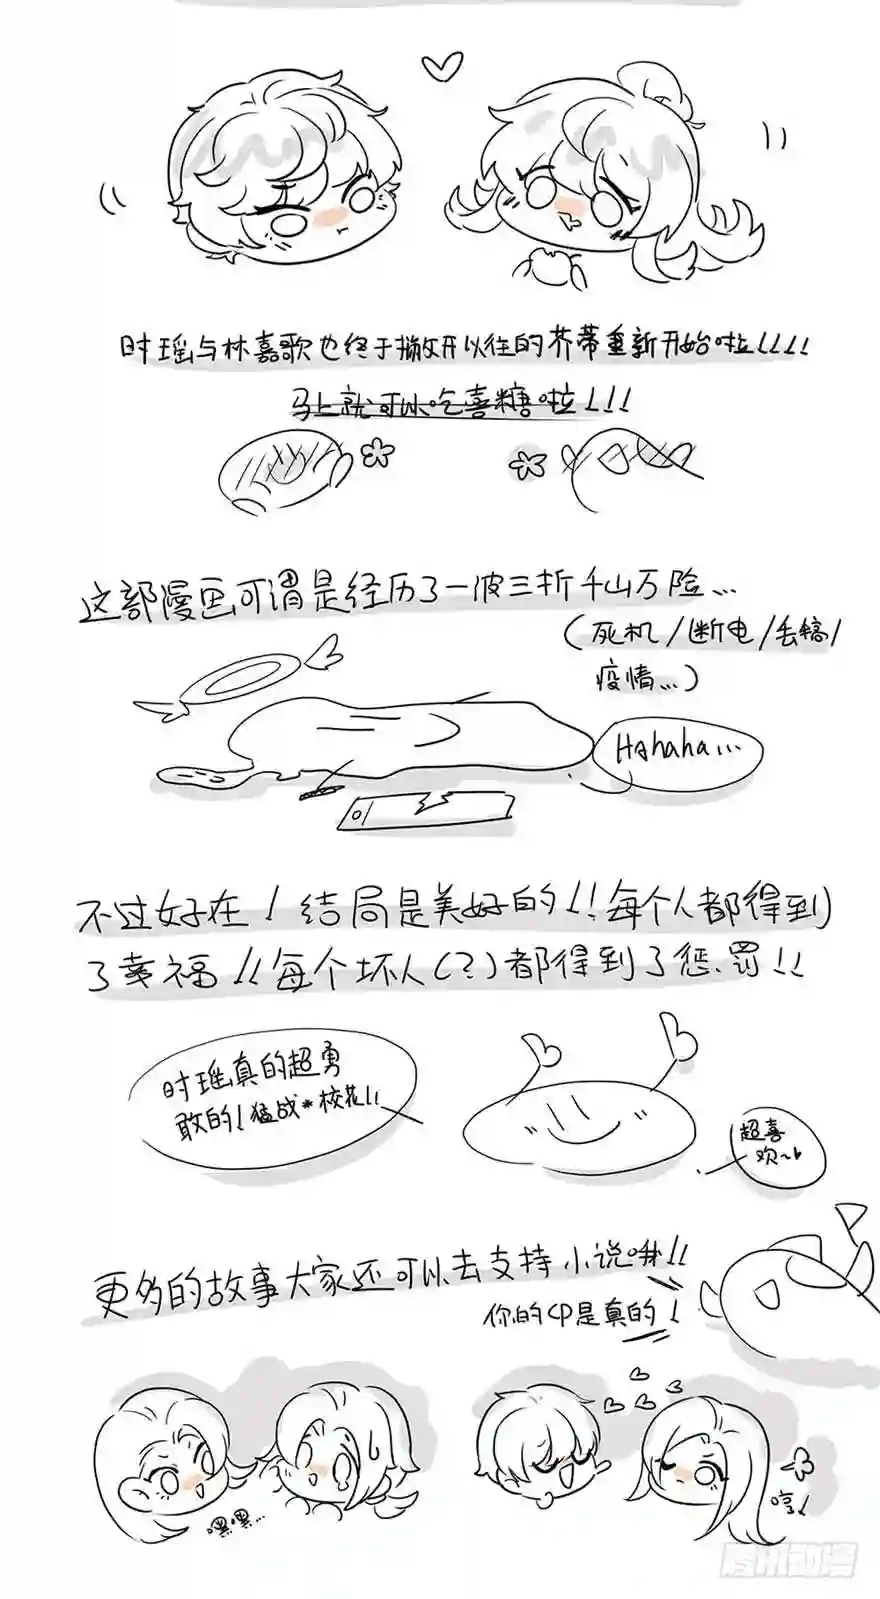 时瑶与林嘉歌也终于撇开以往的芥蒂重新开始啦!!!!
马上就可以吃喜糖啦!!!
这部漫画可谓是经历了一波三折千山万险...
(死机/断电/丢稿/
疫情...)
Hahaha...
不过好在!结局是美好的!!每个人都得到
了幸福!!每个坏人(?)都得到了惩罚!!
时瑶真的超勇
敢的!猛战*校花!!
超喜
欢~
更多的故事大家还可以去支持小说哦!!
你的CP是真的!
嘿嘿...
哼!